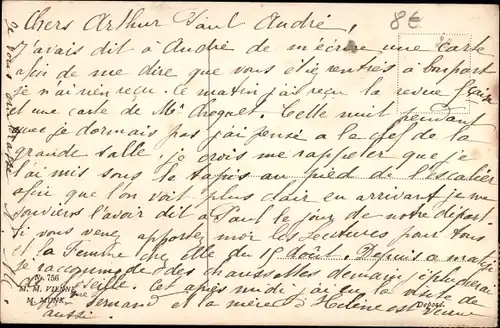 Chers Arthur Paul André,
8€
J'avais dit à André de m'écrire une carte
afin de me dire que vous étiez rentrés à
je n'ai rien reçu. Ce matin j'ai reçu la revue
et une carte de Mr Choquet. Cette nuit pendant
que je dormais pas j'ai pensé a la clef de la
grande salle. Je crois me rappeler que je
l'ai mis sous le tapis au pied de l'escalier
afin que l'on voit plus clair en arrivant je me
souviens l'avoir dit a Paul le jour de notre départ
Si vous venez apportez moi les Lectures pour tous
et la Femme chez elle du 15 Août. Depuis ce matin
je raccommode des chaussettes demain
et après midi j'ai eu la visite de
Fernand et la mère d'Hélène est venue
aussi.
No. 756
M. M. VIENNE
M. MUNK
Dépose.